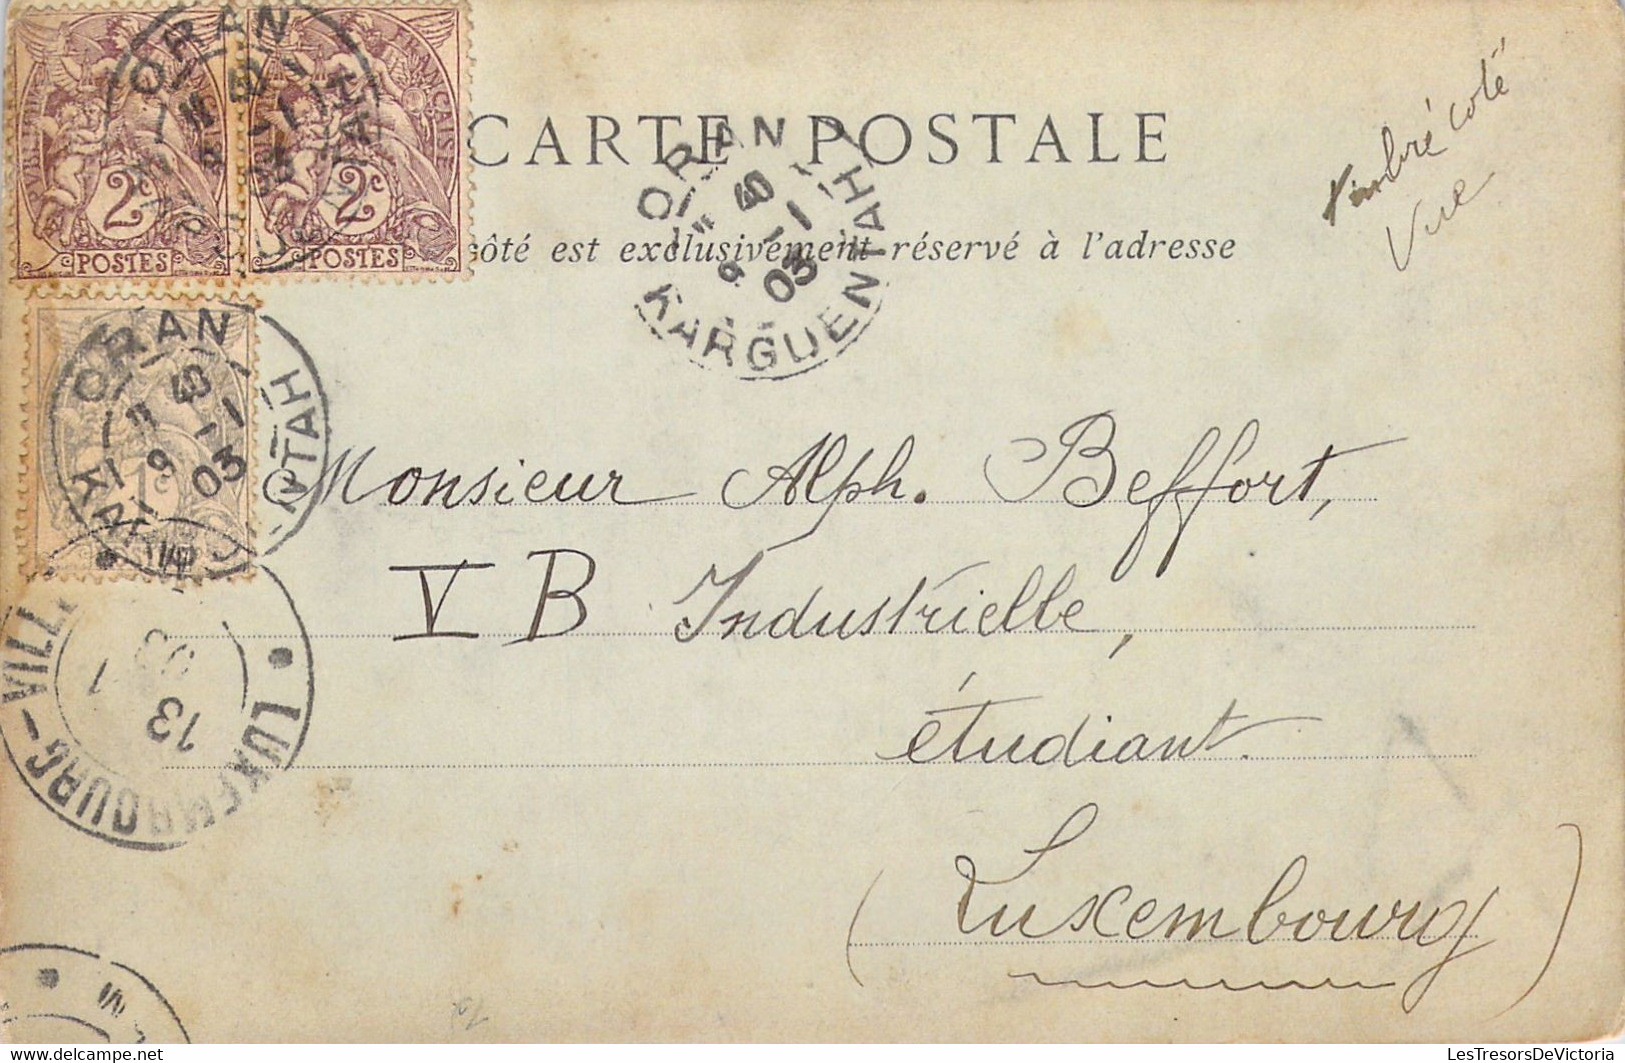 CARTE POSTALE
côté est exclusivement réservé à l'adresse
timbré coté
Vue
RÉPUBLIQUE FRANÇAISE
2c
POSTES
RÉPUBLIQUE FRANÇAISE
2c
POSTES
1c
ORAN
ORAN
KARGUENTAH
11 45
9 -1
03
ORAN
KARGUENTAH
11 45
9 -1
03
LUXEMBOURG-VILLE
13
1
03
Monsieur Alph. Beffort,
V B Industrielle,
étudiant.
(Luxembourg)
www.delcampe.net
LesTresorsDeVictoria